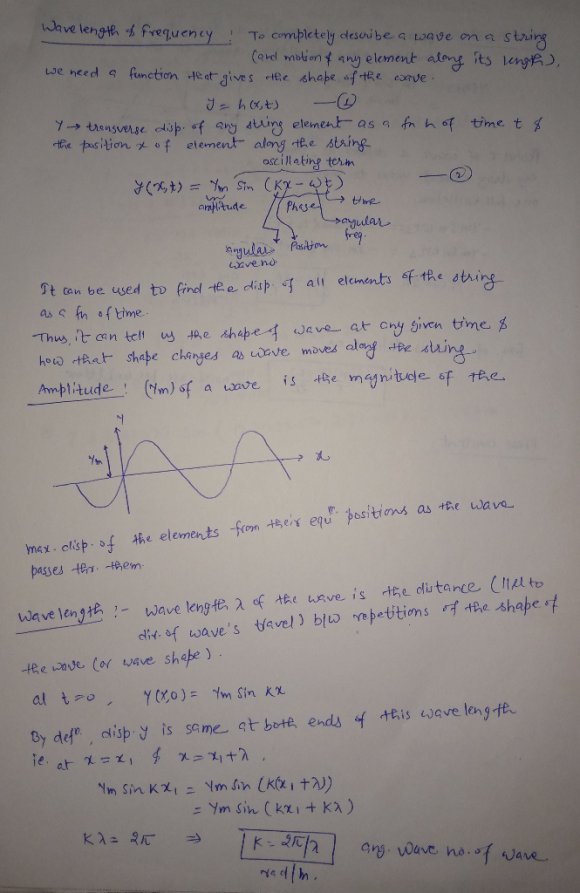 Wavelength & frequency : To completely describe a wave on a string
(and motion of any element along its length),
we need a function that gives the shape of the wave.
y = h(x,t) —①
y → transverse disp. of any string element as a fn h of time t &
the position x of element along the string
oscillating term
y(x,t) = ym sin (kx - ωt) —②
amplitude Phase → time
→ angular
freq.
angular Position
wave no.
It can be used to find the disp. of all elements of the string
as a fn of time.
Thus, it can tell us the shape of wave at any given time &
how that shape changes as wave moves along the string
Amplitude : (ym) of a wave is the magnitude of the
y
ym
x
max. disp. of the elements from their equm positions as the wave
passes thr. them.
Wavelength :- wavelength λ of the wave is the distance (||el to
dir. of wave's travel) b/w repetitions of the shape of
the wave (or wave shape).
at t=0, y(x,0) = ym sin kx
By defn, disp. y is same at both ends of this wavelength
ie. at x = x1 & x = x1+λ.
ym sin kx1 = ym sin (k(x1+λ))
= ym sin (kx1 + kλ)
kλ = 2π ⇒ k = 2π/λ ang. wave no. of wave
rad/m.